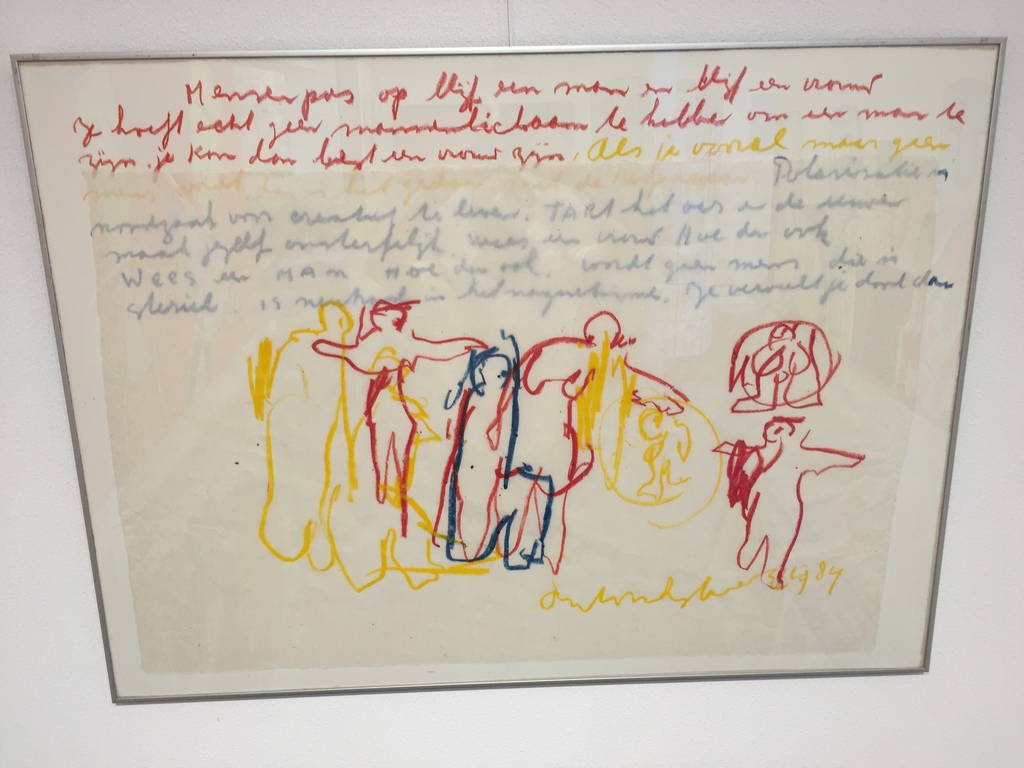 Mensen pas op blijf een man en blijf een vrouw
Je hoeft echt geen mannenlichaam te hebben om een man te
zijn. je kan dan best een vrouw zijn, Als je vooral maar geen
mens Polarisatie is
noodzaak voor creatief te leven. TART het oer en de
maak jezelf onsterfelijk wees een vrouw Hoe dan ook
Wees een MAN HOE dan ook. wordt geen mens die is
steriel. IS neutraal in het magnetisme. Je verveelt je dood dan
1984